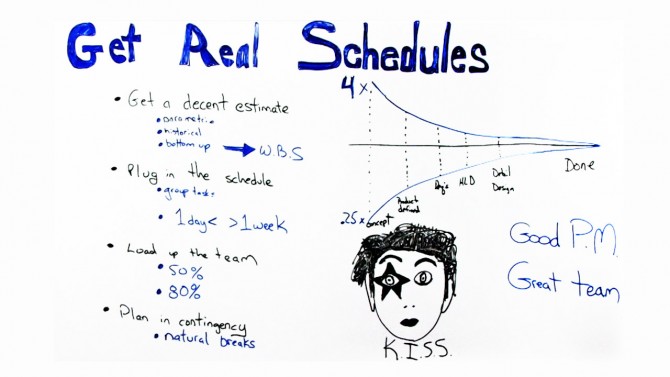 Get Real Schedules
• Get a decent estimate
• parametric
• historical
• bottom up → W.B.S
• Plug in the schedule
• group tasks
• 1day< >1week
• Load up the team
• 50%
• 80%
• Plan in contingency
• natural breaks
4x
.25x
Concept
Product defined
Req's
HLD
Detail Design
Done
K.I.S.S.
Good P.M.
Great team